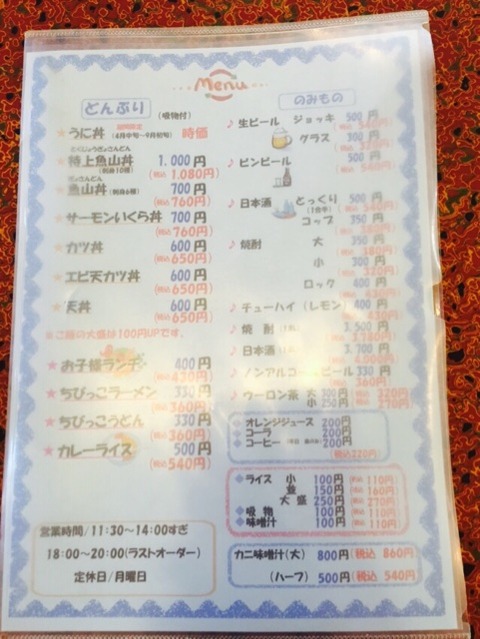 Menu
どんぶり (吸物付)
★うに丼 期間限定 (4月中旬~9月初旬) 時価
とくじょうぎょさんどん
★特上魚山丼 (刺身10種) 1.000円
(税込1.080円)
ぎょさんどん
★魚山丼 (刺身6種) 700円
(税込760円)
★サーモンいくら丼 700円
(税込760円)
★カツ丼 600円
(税込650円)
★エビ天カツ丼 600円
(税込650円)
★天丼 600円
(税込650円)
※ご飯の大盛は100円UPです。
★お子様ランチ 400円
(税込430円)
★ちびっこラーメン 330円
(税込360円)
★ちびっこうどん 330円
(税込360円)
★カレーライス 500円
(税込540円)
営業時間/11:30~14:00すぎ
18:00~20:00(ラストオーダー)
定休日/月曜日
のみもの
♪生ビール ジョッキ 500円
(税込540円)
グラス 300円
(税込320円)
♪ビンビール 500円
(税込540円)
♪日本酒 とっくり (1合半) 500円
(税込540円)
コップ 350円
(税込380円)
♪焼酎 大 350円
(税込380円)
小 300円
(税込320円)
ロック 400円
(税込430円)
♪チューハイ(レモン) 400円
430円)
♪焼酎 3,500円
(税込3,780円)
♪日本酒 3,700円
♪ノンアルコールビール 330円
(税込360円)
♪ウーロン茶 大 300円 (税込320円)
小 250円 (税込270円)
◆オレンジジュース 200円
◆コーラ 200円
◆コーヒー 200円
(税込220円)
◆ライス 小 100円 (税込110円)
並 150円 (税込160円)
大盛 250円 (税込270円)
◆吸物 100円 (税込110円)
◆味噌汁 100円 (税込110円)
カニ味噌汁(大) 800円 (税込 860円)
(ハーフ) 500円 (税込 540円)